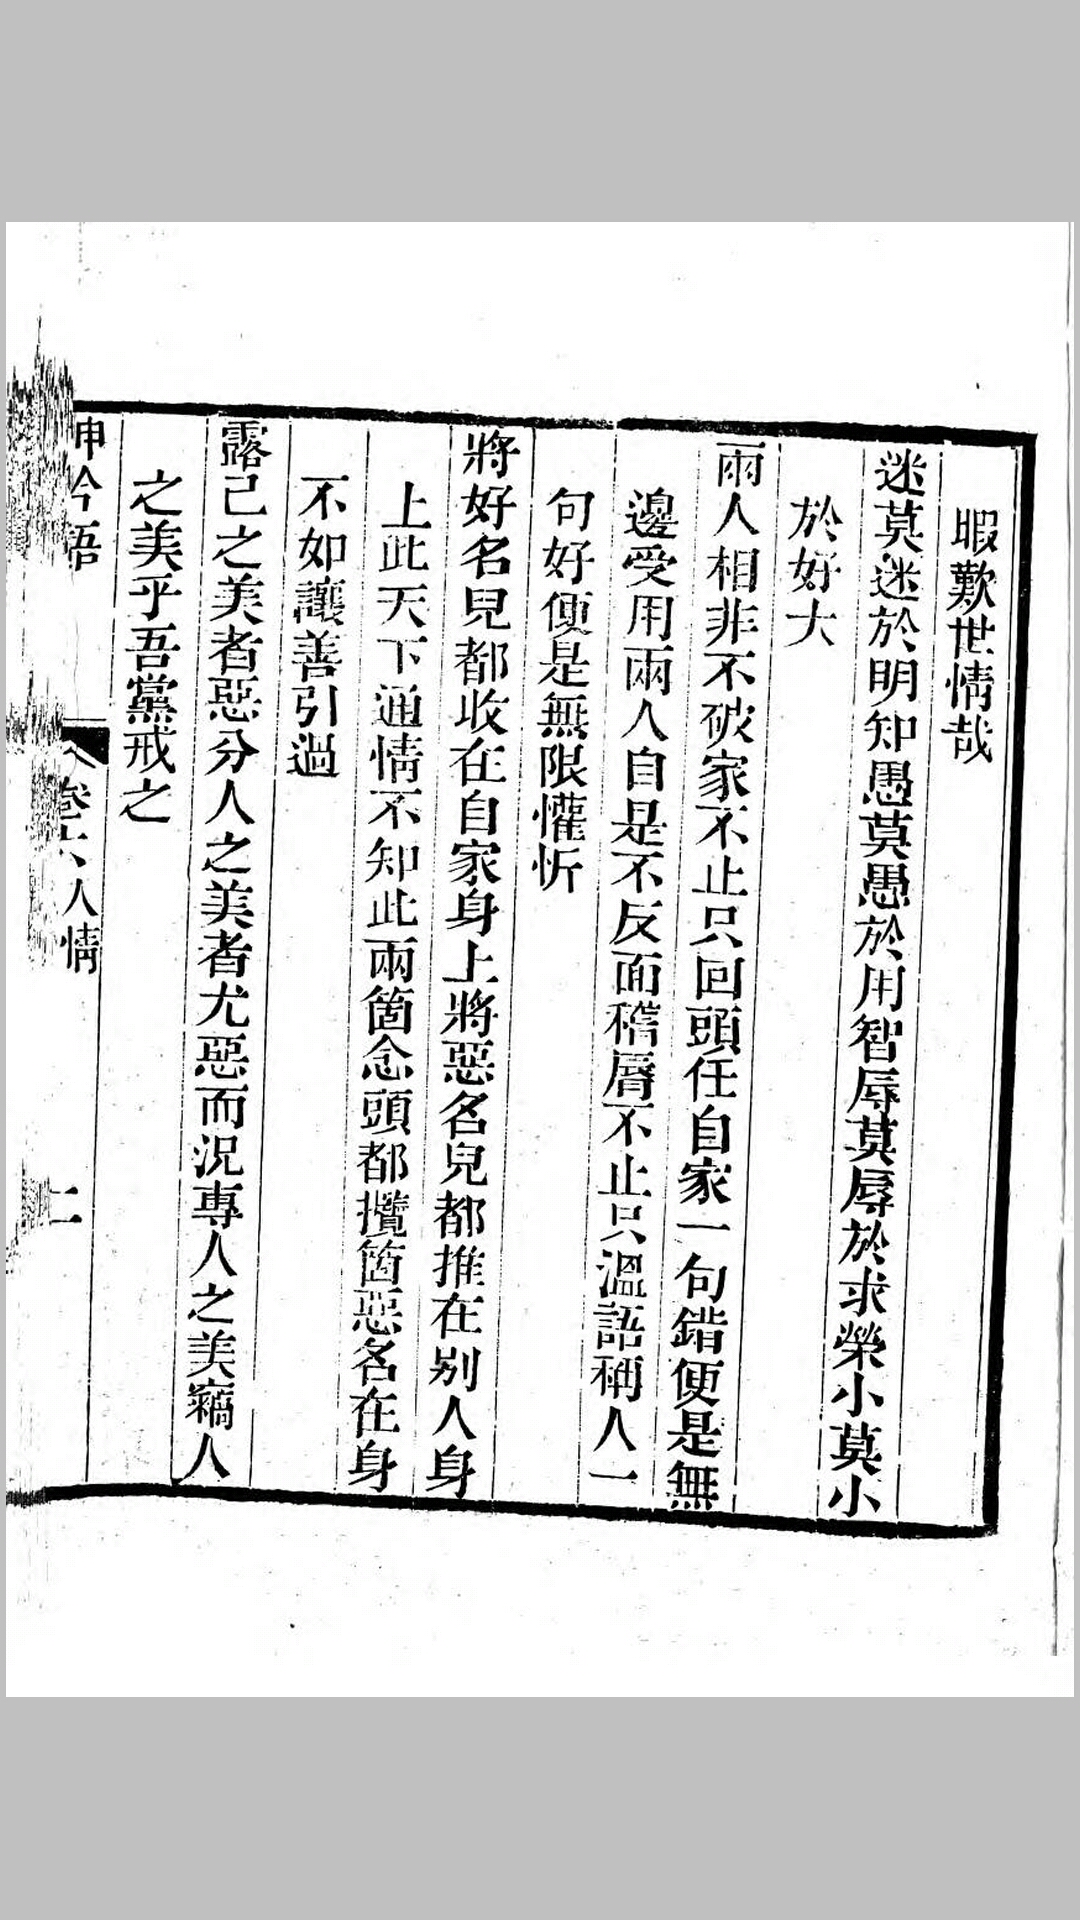 暇歎世情哉
迷莫迷於明知愚莫愚於用智辱莫辱於求榮小莫小
於好大
兩人相非不破家不止只回頭任自家一句錯便是無
邊受用兩人自是不反面稽脣不止只溫語稱人一
句好便是無限懽忻
將好名兒都收在自家身上將惡名兒都推在別人身
上此天下通情不知此兩箇念頭都攬箇惡名在身
不如讓善引過
露己之美者惡分人之美者尤惡而況專人之美竊人
之美乎吾黨戒之
呻吟語 卷六人情 二